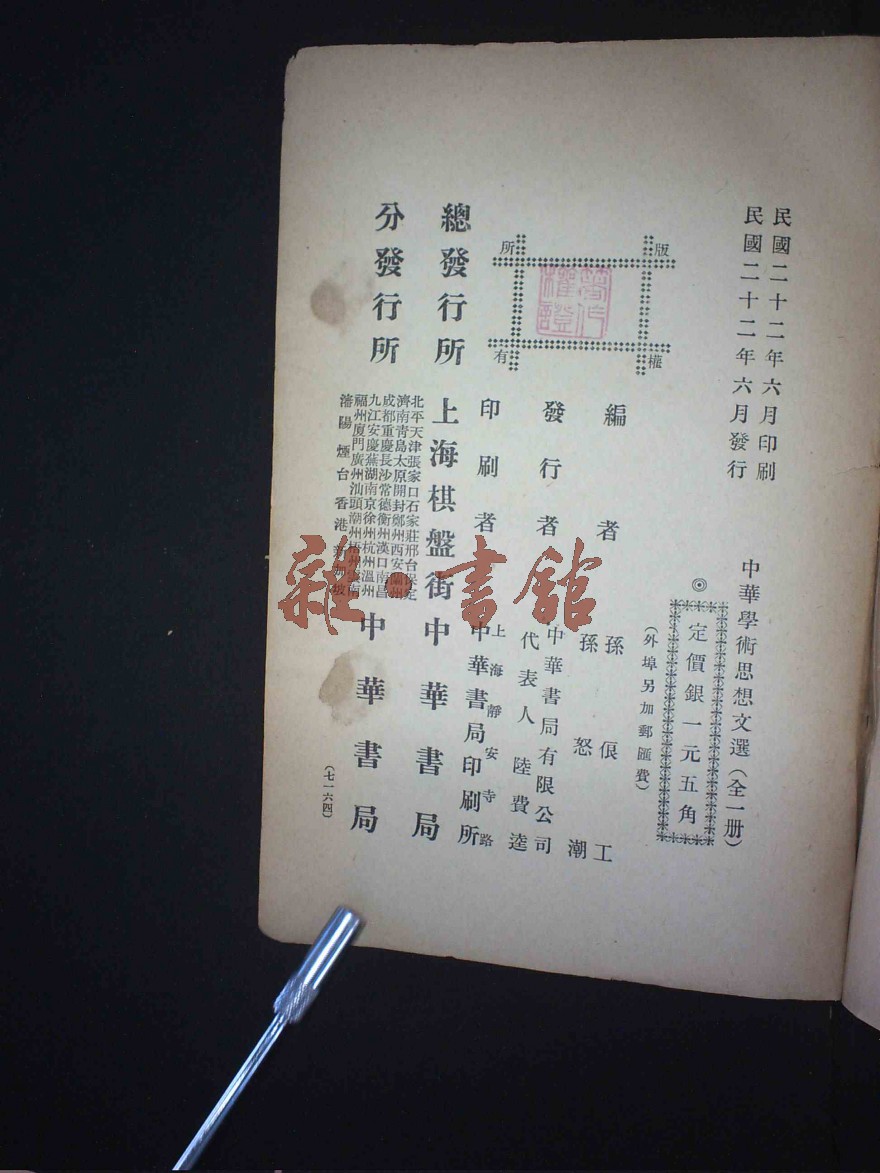 民國二十二年六月印刷
民國二十二年六月發行
中華學術思想文選(全一册)
◎定價銀一元五角
(外埠另加郵匯費)
版權所有
著作權證
編者 孫俍工
孫怒潮
發行者 中華書局有限公司
代表人 陸費逵
印刷者 上海靜安寺路
中華書局印刷所
總發行所 上海棋盤街 中華書局
分發行所
北平天津張家口石家莊邢台保定
濟南青島太原開封鄭州西安蘭州
成都重慶長沙常德衡州漢口南昌
九江安慶蕪湖南京徐州杭州溫州
福州厦門廣州汕頭潮州梧州雲南
瀋陽煙台香港新加坡
中華書局
(七一六四)
雜·書館